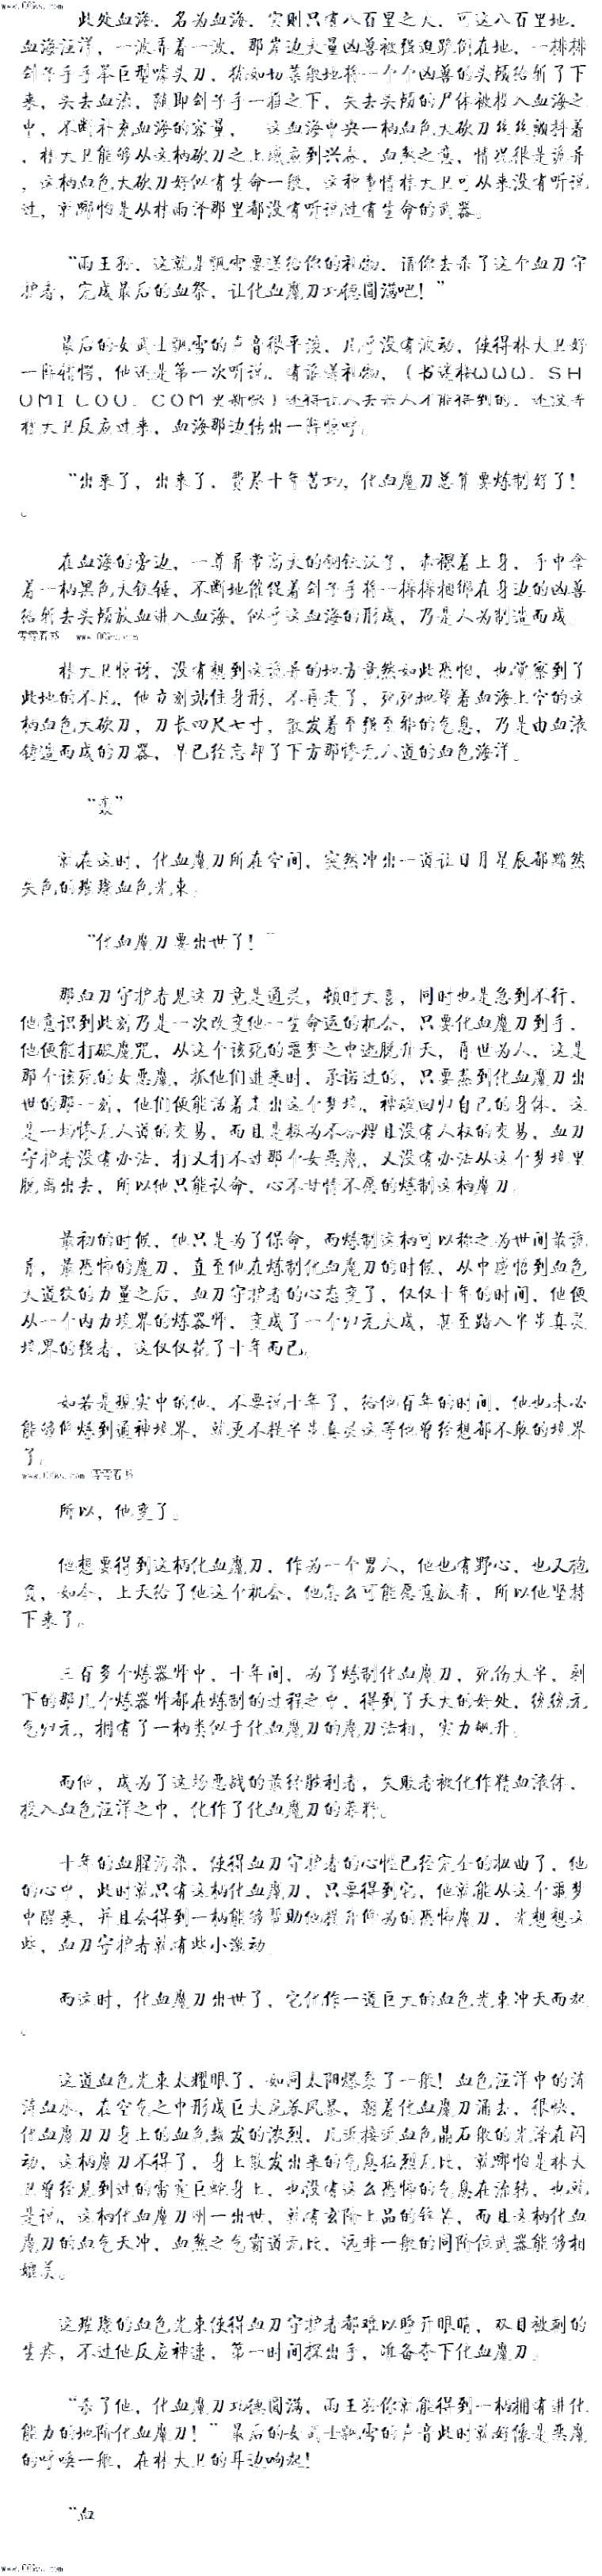 www.00ks.com
此处血海，名为血海，实则只有八百里之大，可这八百里地，
血海汪洋，一波弄着一波，那岸边大量凶兽被强迫跪倒在地，一排排
刽子手手举巨型嘴头刀，犹如切菜般地将一个个凶兽的头颅给斩了下
来，头去血流，随即刽子手一推之下，失去头颅的尸体被投入血海之
中，不断补充血海的容量，  这血海中央一柄血色大砍刀丝丝颤抖着
，林大卫能够从这柄砍刀之上感应到兴奋，血煞之意，情况很是诡异
，这柄血色大砍刀好似有生命一般，这种事情林大卫可从来没有听说
过，就哪怕是从村雨泽那里都没有听说过有生命的武器。
“雨王孙，这就是飘雪要送给你的礼物，请你去杀了这个血刀守
护者，完成最后的血祭，让化血魔刀功德圆满吧！”
最后的女武士飘雪的声音很平淡，几乎没有波动，使得林大卫好
一阵错愕，他还是第一次听说，有谁送礼物，（书迷楼ＷＷＷ．ＳＨ
ＵＭＩＬＯＵ．ＣＯＭ更新快）还得让人去杀人才能得到的，还没等
林大卫反应过来，血海那边传出一阵惊呼。
“出来了，出来了，费尽十年苦功，化血魔刀总算要炼制好了！
。
在血海的旁边，一尊异常高大的钢铁汉子，赤裸着上身，手中拿
着一柄黑色大铁锤，不断地催促着刽子手将一排排捆绑在身边的凶兽
给斩去头颅放血进入血海，似乎这血海的形成，乃是人为制造而成
零零看书 www.00ks.com
林大卫惊讶，没有想到这诡异的地方竟然如此恐怖，也觉察到了
此地的不凡，他立刻站住身形，不再走了，死死地望着血海上空的这
柄血色大砍刀，刀长四尺七寸，散发着至强至邪的气息，乃是由血液
铸造而成的刀器，早已经忘却了下方那惨无人道的血色海洋。
就在这时，化血魔刀所在空间，突然冲出一道让日月星辰都黯然
失色的璀璨血色光束。
“化血魔刀要出世了！”
那血刀守护者见这刀竟是通灵，顿时大喜，同时也是急到不行，
他意识到此刻乃是一次改变他一生命运的机会，只要化血魔刀到手，
他便能打破魔咒，从这个该死的噩梦之中逃脱升天，再世为人，这是
那个该死的女恶魔，抓他们进来时，承诺过的，只要熬到化血魔刀出
世的那一刻，他们便能活着走出这个梦境，神魂回归自己的身体，这
是一场惨无人道的交易，而且是极为不合理且没有人权的交易，血刀
守护者没有办法，打又打不过那个女恶魔，又没有办法从这个梦境里
脱离出去，所以他只能认命，心不甘情不愿的炼制这柄魔刀。
最初的时候，他只是为了保命，而炼制这柄可以称之为世间最诡
异，最恐怖的魔刀，直至他在炼制化血魔刀的时候，从中感悟到血色
大道纹的力量之后，血刀守护者的心态变了，仅仅十年的时间，他便
从一个内力境界的炼器师，变成了一个归元大成，甚至踏入半步真灵
境界的强者，这仅仅花了十年而已。
如若是现实中的他，不要说十年了，给他百年的时间，他也未必
能够修炼到通神境界，就更不提半步真灵这等他曾经想都不敢的境界
了。
www.00ks.com 零零看书
所以，他变了。
他想要得到这柄化血魔刀，作为一个男人，他也有野心，也又抱
负，如今，上天给了他这个机会，他怎么可能愿意放弃，所以他坚持
下来了。
三百多个炼器师中，十年间，为了炼制化血魔刀，死伤大半，剩
下的那几个炼器师都在炼制的过程之中，得到了天大的好处，统统元
气归元，拥有了一柄类似于化血魔刀的魔刀法相，实力飙升。
而他，成为了这场恶战的最终胜利者，失败者被化作精血液体，
投入血色汪洋之中，化作了化血魔刀的养料。
十年的血腥污染，使得血刀守护者的心性已经完全的扭曲了，他
的心中，此时就只有这柄化血魔刀，只要得到它，他就能从这个噩梦
中醒来，并且会得到一柄能够帮助他提升修为的恐怖魔刀，光想想这
些，血刀守护者就有些小激动。
而这时，化血魔刀出世了，它化作一道巨大的血色光束冲天而起
。
这道血色光束太耀眼了，如同太阳爆炸了一般！血色汪洋中的滴
滴血水，在空气之中形成巨大龙卷风暴，朝着化血魔刀涌去，很快，
化血魔刀刀身上的血色越发的浓烈，几乎接近血色晶石般的光泽在闪
动，这柄魔刀不得了，身上散发出来的气息猛烈无比，就哪怕是林大
卫曾经见到过的雷霆巨蛇身上，也没有这么恐怖的气息在流转，也就
是说，这柄化血魔刀刚一出世，就有玄阶上品的锋芒，而且这柄化血
魔刀的血气天冲，血煞之气霸道无比，远非一般的同阶位武器能够相
媲美。
这璀璨的血色光束使得血刀守护者都难以睁开眼睛，双目被刺的
生疼，不过他反应神速，第一时间探出手，准备夺下化血魔刀。
“杀了他，化血魔刀功德圆满，雨王孙你就能得到一柄拥有进化
能力的地阶化血魔刀！”最后的女武士飘雪的声音此时就好像是恶魔
的呼唤一般，在林大卫的耳边响起！
“血
www.00ks.com